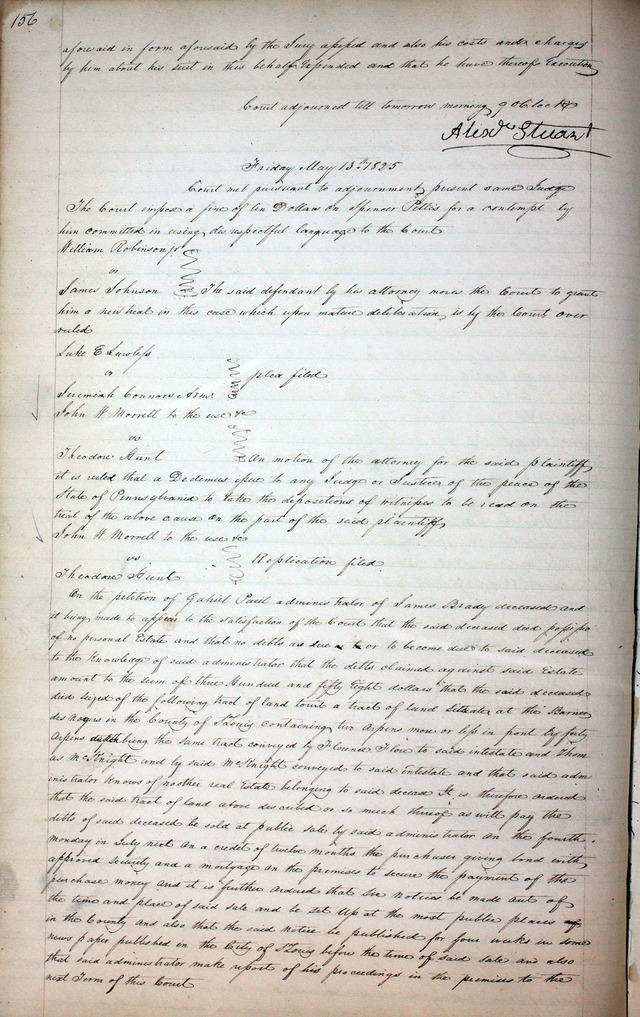 156
aforesaid in form aforesaid by the Jury assessed and also his costs and charges
by him about his suit in this behalf Expended and that he have thereof Execution
Court adjourned till tomorrow morning 9 Oclock
Alexdr Stuart
Friday May 13th 1825
Court met pursuant to adjournment present same Judge
The Court impose a fine of ten Dollars on Spencer Pettis for a contempt by
him committed in using disrespectful language to the Court
William Robinson jr
vs
James Johnson The said defendant by his attorney moves the Court to grant
him a new trial in this case which upon mature deliberation is by the Court over
ruled
Luke E Lawless
v plea filed
Jeremiah Connors Adm
John W Morrell to the use &c
vs
Theodore Hunt On motion of the attorney for the said plaintiff
it is ruled that a Dedemus issue to any Judge or Justice of the peace of the
State of Pennsylvania to take the depositions of witnesses to be read on the
trial of the above cause on the part of the said plaintiff
John W Morrell to the use &c
vs Replication filed
Theodore Hunt
On the petition of Gabriel Paul administrator of James Brady deceased and
it being made to appear to the satisfaction of the Court that the said deceased died possessed
of no personal Estate and that no debts are due or to become due to said deceased
to the knowledge of said administrator that the debts claimed against said Estate
amount to the sum of three Hundred and fifty Eight dollars that the said deceased
died seized of the following tract of land towit a tract of land situate at the Barriere
des Noyers in the County of St Louis containing two Arpens more or less in front by forty
Arpens being the same tract conveyed by to said intestate and Thom
as McKnight and by said McKnight conveyed to said intestate and that said adm
inistrator knows of no other real Estate belonging to said decead It is therefore ordered
that the said tract of land above described or so much thereof as will pay the
debts of said deceased be sold at public sale by said administrator on the fourth
monday in July next on a credit of twelve months the purchaser giving bond with
approved Security and a mortgage on the premises to secure the payment of the
purchase money and it is further ordered that six notices be made out of
the time and place of said sale and be set up at the most public places
in the County and also that the said notice be published for four weeks in some
news paper published in the City of St Louis before the time of said sale and also
that said administrator make report of his proceedings in the premises to the
next Term of this Court